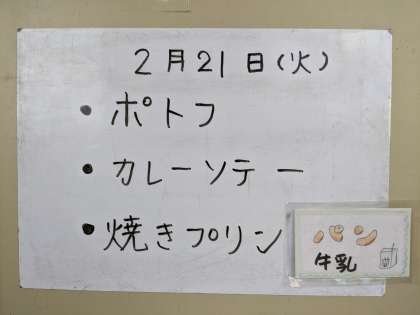 2月21日(火)
• ポトフ
• カレーソテー
• 焼きプリン
パン
牛乳